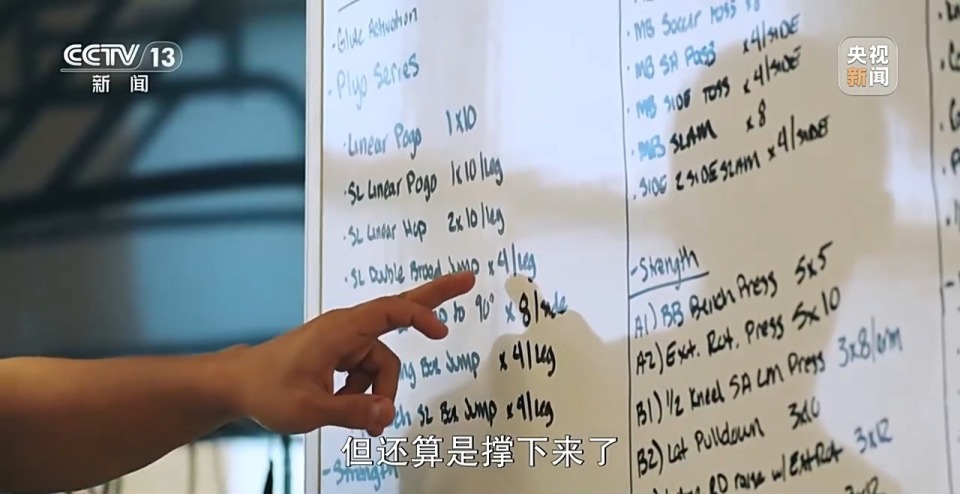 CCTV 13
新闻
央视
新闻
- Glute Activation
- Plyo Series
· Linear Pogo 1x10
· SL Linear Pogo 1x10/leg
· SL Linear Hop 2x10/leg
· SL Double Broad Jump x4/leg
to 90° x8/side
Box Jump x4/leg
SL Box Jump x4/leg
- Strength
· MB Soccer Toss x8
· MB SA Pass x4/SIDE
· MB SIDE TOSS x4/SIDE
· MB SLAM x8
· SIDE 2 SIDE SLAM x4/SIDE
- Strength
A1) BB Bench Press 5x5
A2) Ext. Rot. Press 5x10
B1) 1/2 Kneel SA LM Press 3x8/arm
B2) Lat Pulldown 3x10
RD raise w/ Ext Rot 3x12
但还算是撑下来了